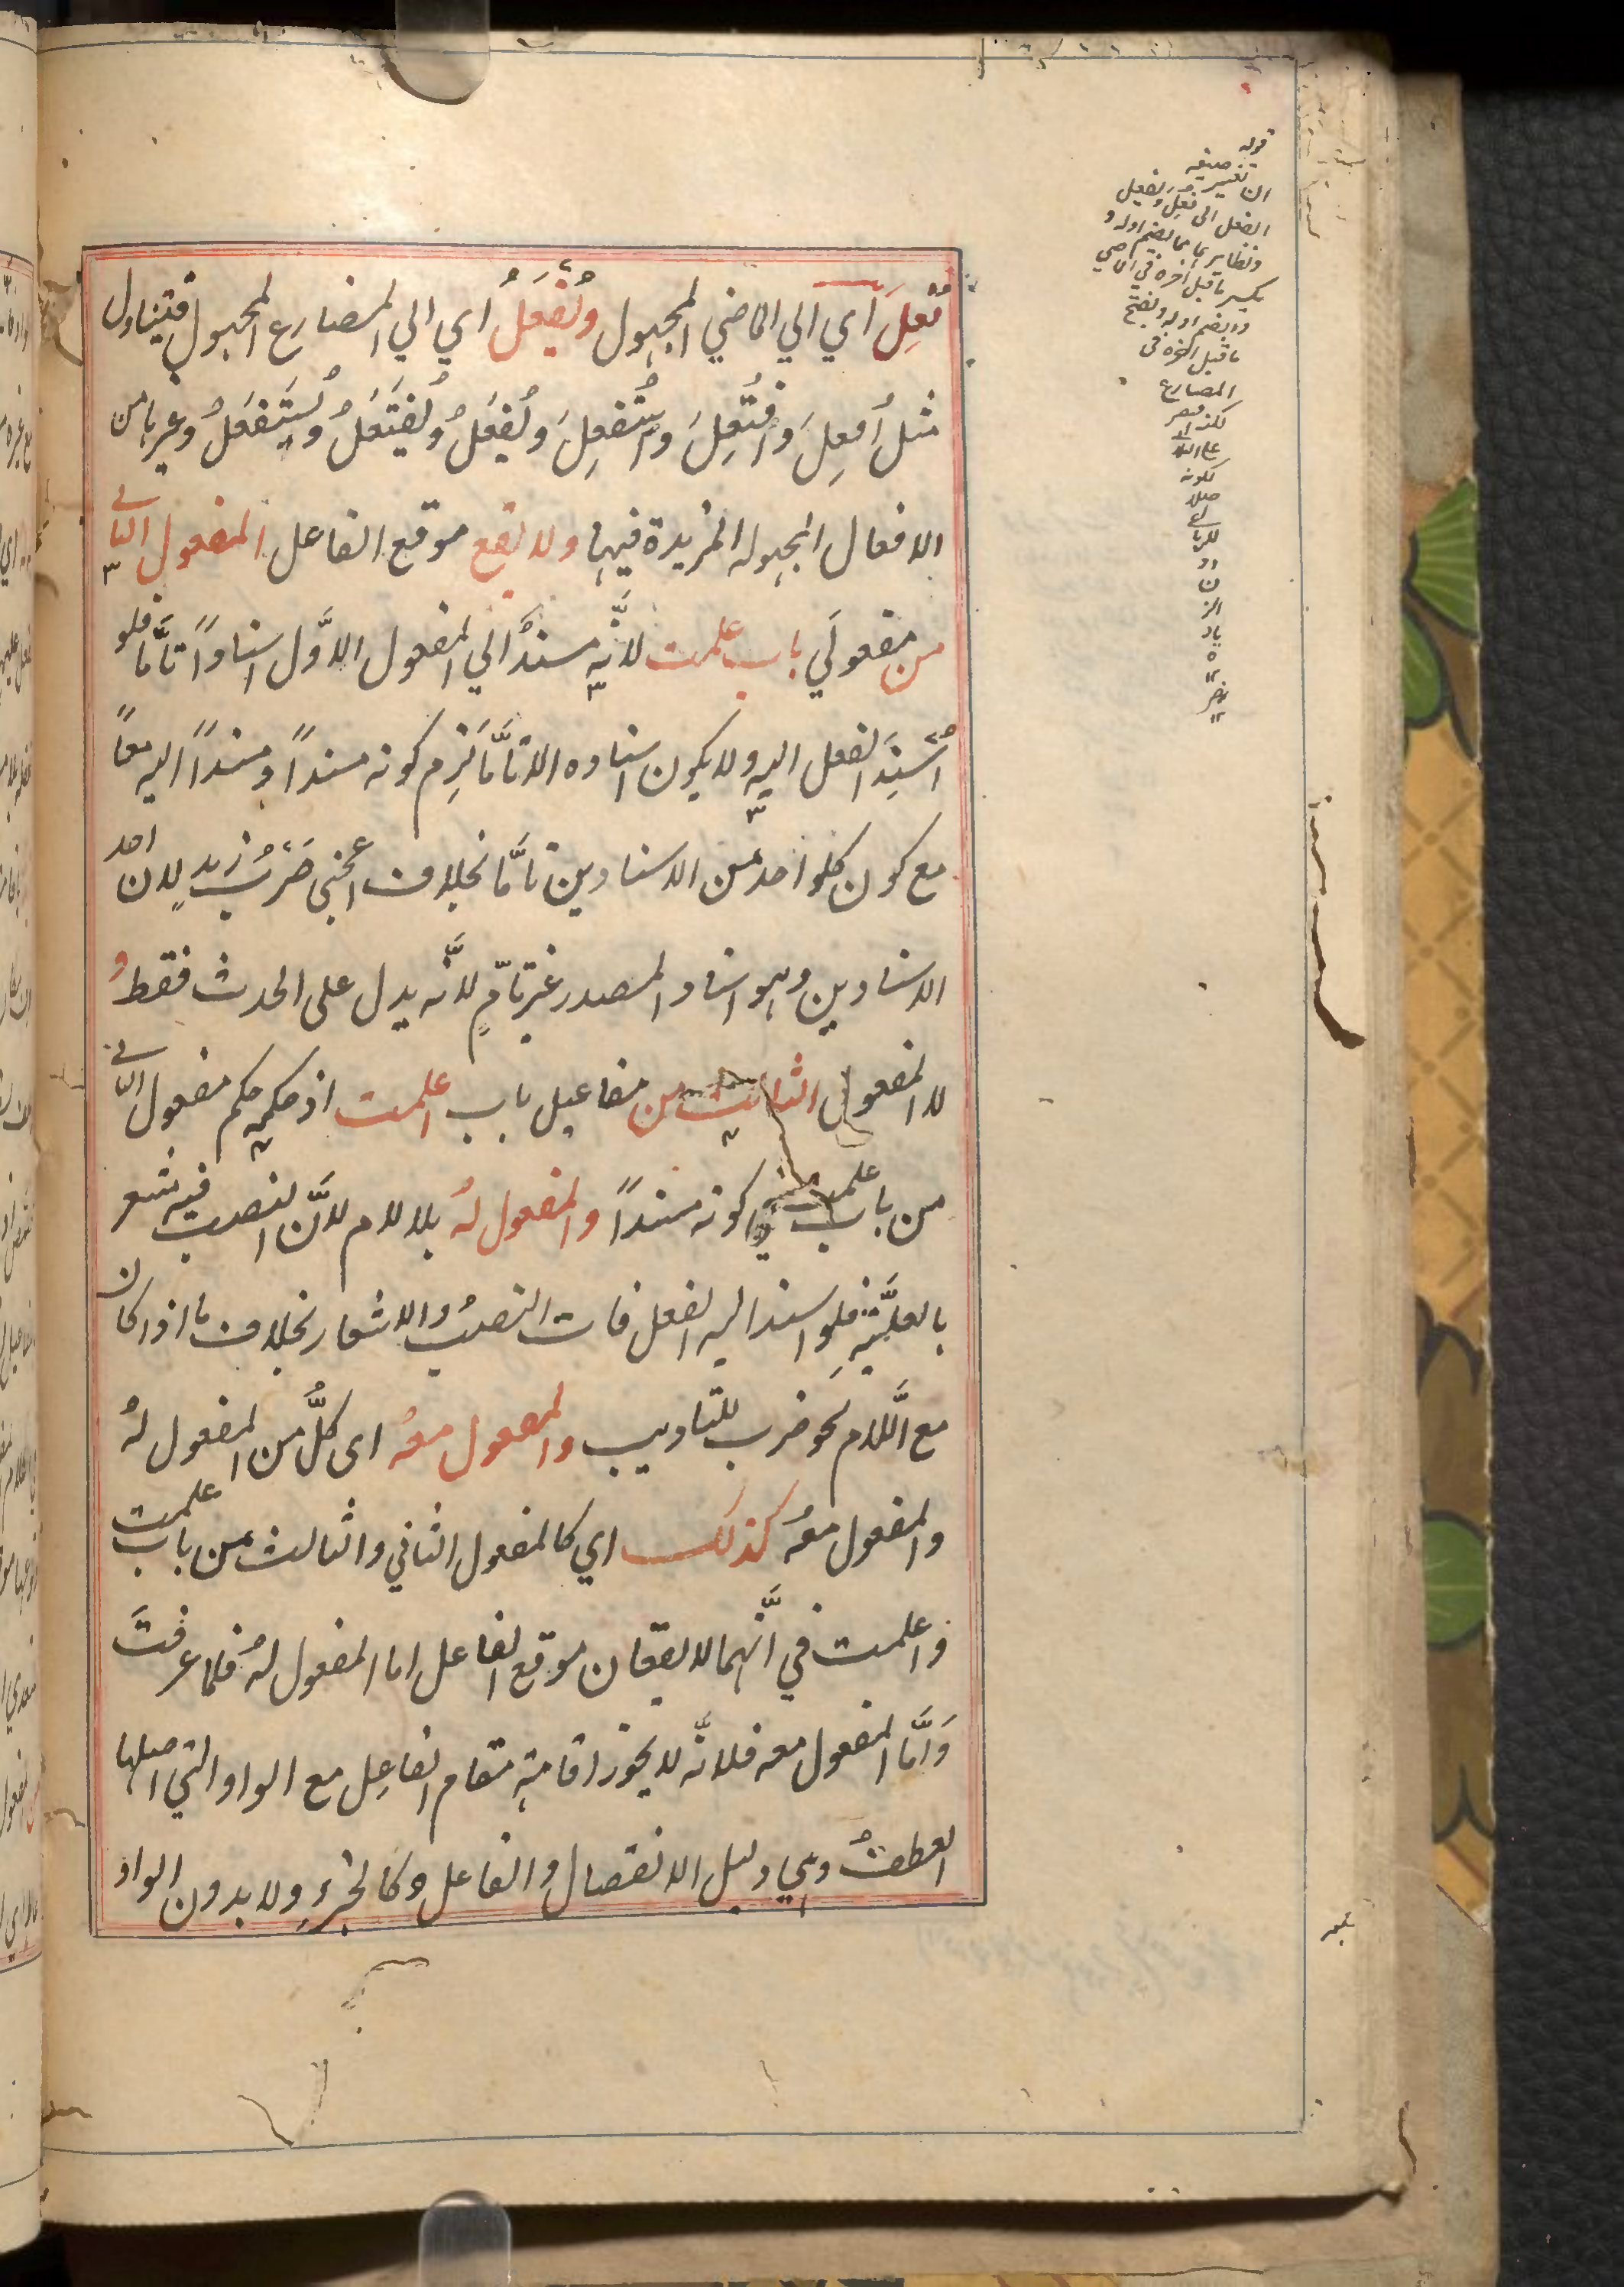 فُعِلَ اي الي الماضي المجهول ويُفْعَلُ اي الي المضارع المجهول فيتناول
مثل أُفعِلَ وافتُعِلَ واستُفعِلَ ويُفعَلُ ويُفتَعَلُ ويُستَفعَلُ وغيرها من
الافعال المجهوله المزيدة فيها ولا يقع موقع الفاعل المفعول الثاني
من مفعولَي باب علمت لانَّه مسندٌ الي المفعول الاوَّل اسنادًا تامًّا فلو
اُسنِدَ الفعل اليه ولا يكون اسناده الا تامًّا لزم كونه مسنداً ومسنداً اليه معاً
مع كون كلواحد من الاسنادين تامًّا بخلاف اعجبني ضَرْبُ زيدٍ لان احد
الاسنادين وهو اسناد المصدر غير تامٍّ لانَّه يدل على الحدث فقط و
لا المفعول الثالث من مفاعيل باب اعلمت اذ حكمه حكم مفعول الثاني
من باب علمت في كونه مسنداً والمفعول لهُ بلا لام لانَّ النصب فيه مشعر
بالعلّيَّة فلو اسند اليه الفعل فات النصبُ والاشعار بخلاف ما اذا كان
مع اللَّام نحو ضرب للتاديب والمفعول معهُ اى كلٌّ من المفعول لهُ
والمفعول معهُ كذلك اي كالمفعول الثاني والثالث من باب علمت
واعلمت في انَّهما لا يقعان موقع الفاعل اما المفعول لهُ فلما عرفتَ
وَامَّا المفعول معه فلانَّه لا يجوز اقامته مقام الفاعِل مع الواو التي اصلها
العطفُ وهي دليل الانفصال والفاعل كالجزءِ ولا بدون الواو
قوله
ان تغيير صيغة
الفعل الى فُعِلَ ويُفعل
ونظايرهما مما يضم اوله و
يكسر ما قبل آخره في الماضي
ويضم اوله ويفتح
ما قبل آخره فى
المضارع